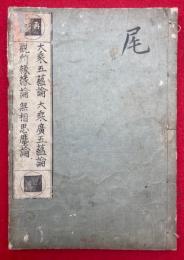 尾
大乘五蘊論 大乘廣五蘊論
觀所緣緣論 無相思塵論